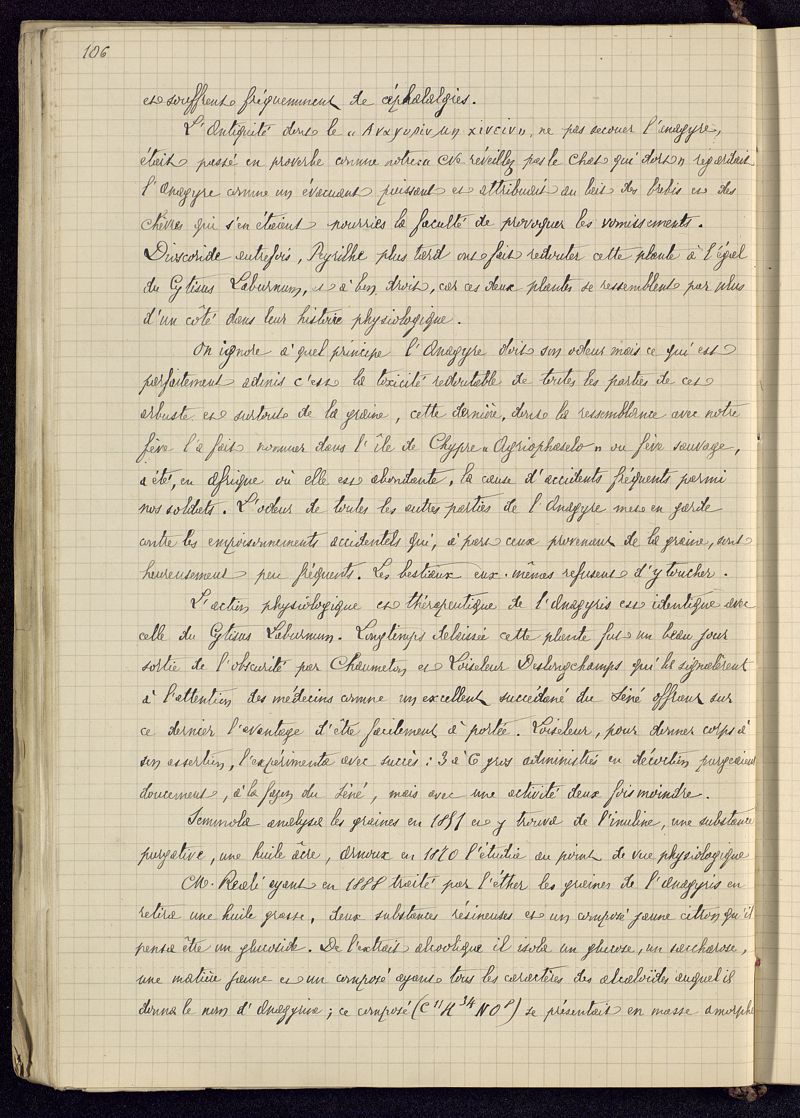 106
et souffrent fréquemment de céphalalgies.
L'Antiquité dont le « Αναγυρίν μη κινείν », ne pas secouer l'anagyre,
était passé en proverbe comme notre « Ne réveillez pas le chat qui dort » regardait
l'Anagyre comme un évacuant puissant et attribuait au lait des brebis et des
chèvres qui s'en étaient nourries la faculté de provoquer les vomissements.
Dioscoride autrefois, Pyrilhe plus tard ont fait redouter cette plante à l'égal
du Cytisus Laburnum, et à bon droit, car ces deux plantes se ressemblent par plus
d'un côté dans leur histoire physiologique.
On ignore à quel principe l'Anagyre doit son odeur mais ce qui est
parfaitement admis c'est la toxicité redoutable de toutes les parties de cet
arbuste et surtout de la graine, cette dernière, dont la ressemblance avec notre
fève l'a fait nommer dans l'île de Chypre « Agriophaselo » ou fève sauvage,
a été, en Afrique où elle est abondante, la cause d'accidents fréquents parmi
nos soldats. L'odeur de toutes les autres parties de l'Anagyre met en garde
contre les empoisonnements accidentels qui, à part ceux provenant de la graine, sont
heureusement peu fréquents. Les bestiaux eux-mêmes refusent d'y toucher.
L'action physiologique et thérapeutique de l'Anagyris est identique avec
celle du Cytisus Laburnum. Longtemps délaissée cette plante fut un beau jour
sortie de l'obscurité par Chaumeton et Loiseleur Deslongchamps qui la signalèrent
à l'attention des médecins comme un excellent succédané du Séné offrant sur
ce dernier l'avantage d'être facilement à portée. Loiseleur, pour donner corps à
son assertion, l'expérimenta avec succès : 3 à 6 gros administrés en décoction purgeaient
doucement, à la façon du Séné, mais avec une activité deux fois moindre.
Semmola analysa les graines en 1851 et y trouva de l'inuline, une substance
purgative, une huile âcre, Arnoux en 1870 l'étudia au point de vue physiologique
M. Reale ayant en 1888 traité par l'éther les graines de l'Anagyris en
retira une huile grasse, deux substances résineuses et un composé jaune citron qu'il
pensa être un glucoside. De l'extrait alcoolique il isola un glucose, un saccharose,
une matière jaune et un composé ayant tous les caractères des alcaloïdes auquel il
donna le nom d'Anagyrine ; ce composé (C¹¹H³⁴NO⁸) se présentait en masse amorphe